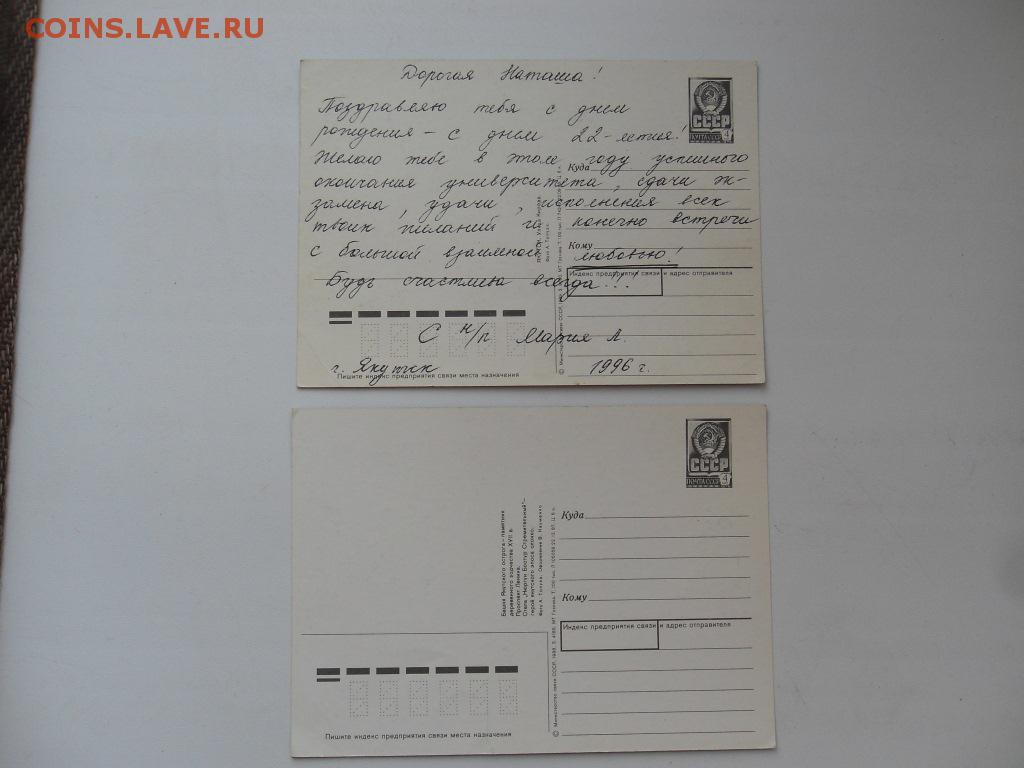 COINS.LAVE.RU
Дорогая Наташа!
Поздравляю тебя с днем
рождения – с днем 22-летия!
Желаю тебе в этом году успешного
окончания университета, сдачи эк-
замена, удачи, исполнения всех
твоих желаний и конечно встречи
с большой взаимной любовью!
Будь счастлива всегда!!!
С н/п Мария А.
г. Якутск 1996 г.
СССР
ПОЧТА СССР 4
Куда
Кому
Индекс предприятия связи и адрес отправителя
Пишите индекс предприятия связи места назначения
СССР
ПОЧТА СССР 4
Башня Якутского острога – памятник
деревянного зодчества XVII в.
Проспект Ленина.
Стела „Нюргун Боотур Стремительный“ –
герой якутского эпоса олонхо.
© Министерство связи СССР, 1988.
Куда
Кому
Индекс предприятия связи и адрес отправителя
Пишите индекс предприятия связи места назначения